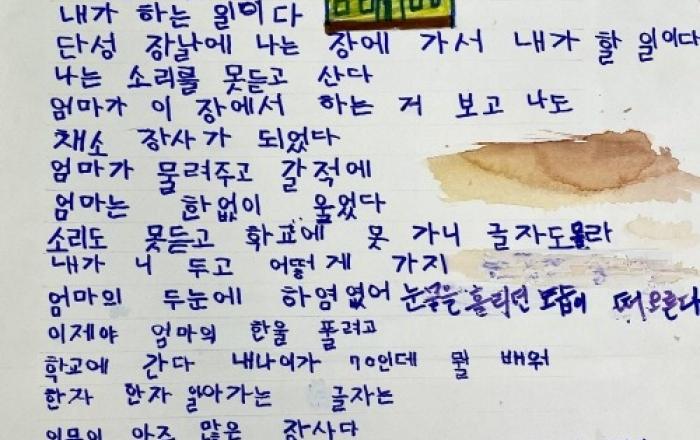 내가 하는 일이다
단성 장날에 나는 장에 가서 내가 할 일이다
나는 소리를 못듣고 산다
엄마가 이 장에서 하는 거 보고 나도
채소 장사가 되었다
엄마가 물려주고 갈적에
엄마는 한없이 울었다
소리도 못듣고 학교에 못 가니 글자도몰라
내가 니 두고 어떻게 가지
엄마의 두눈에 하염없어 눈물을 흘리던 모습이 떠오른다
이제야 엄마의 한을 풀려고
학교에 간다 내나이가 70인데 뭘 배워
한자 한자 알아가는 글자는
아주 많은 장사다